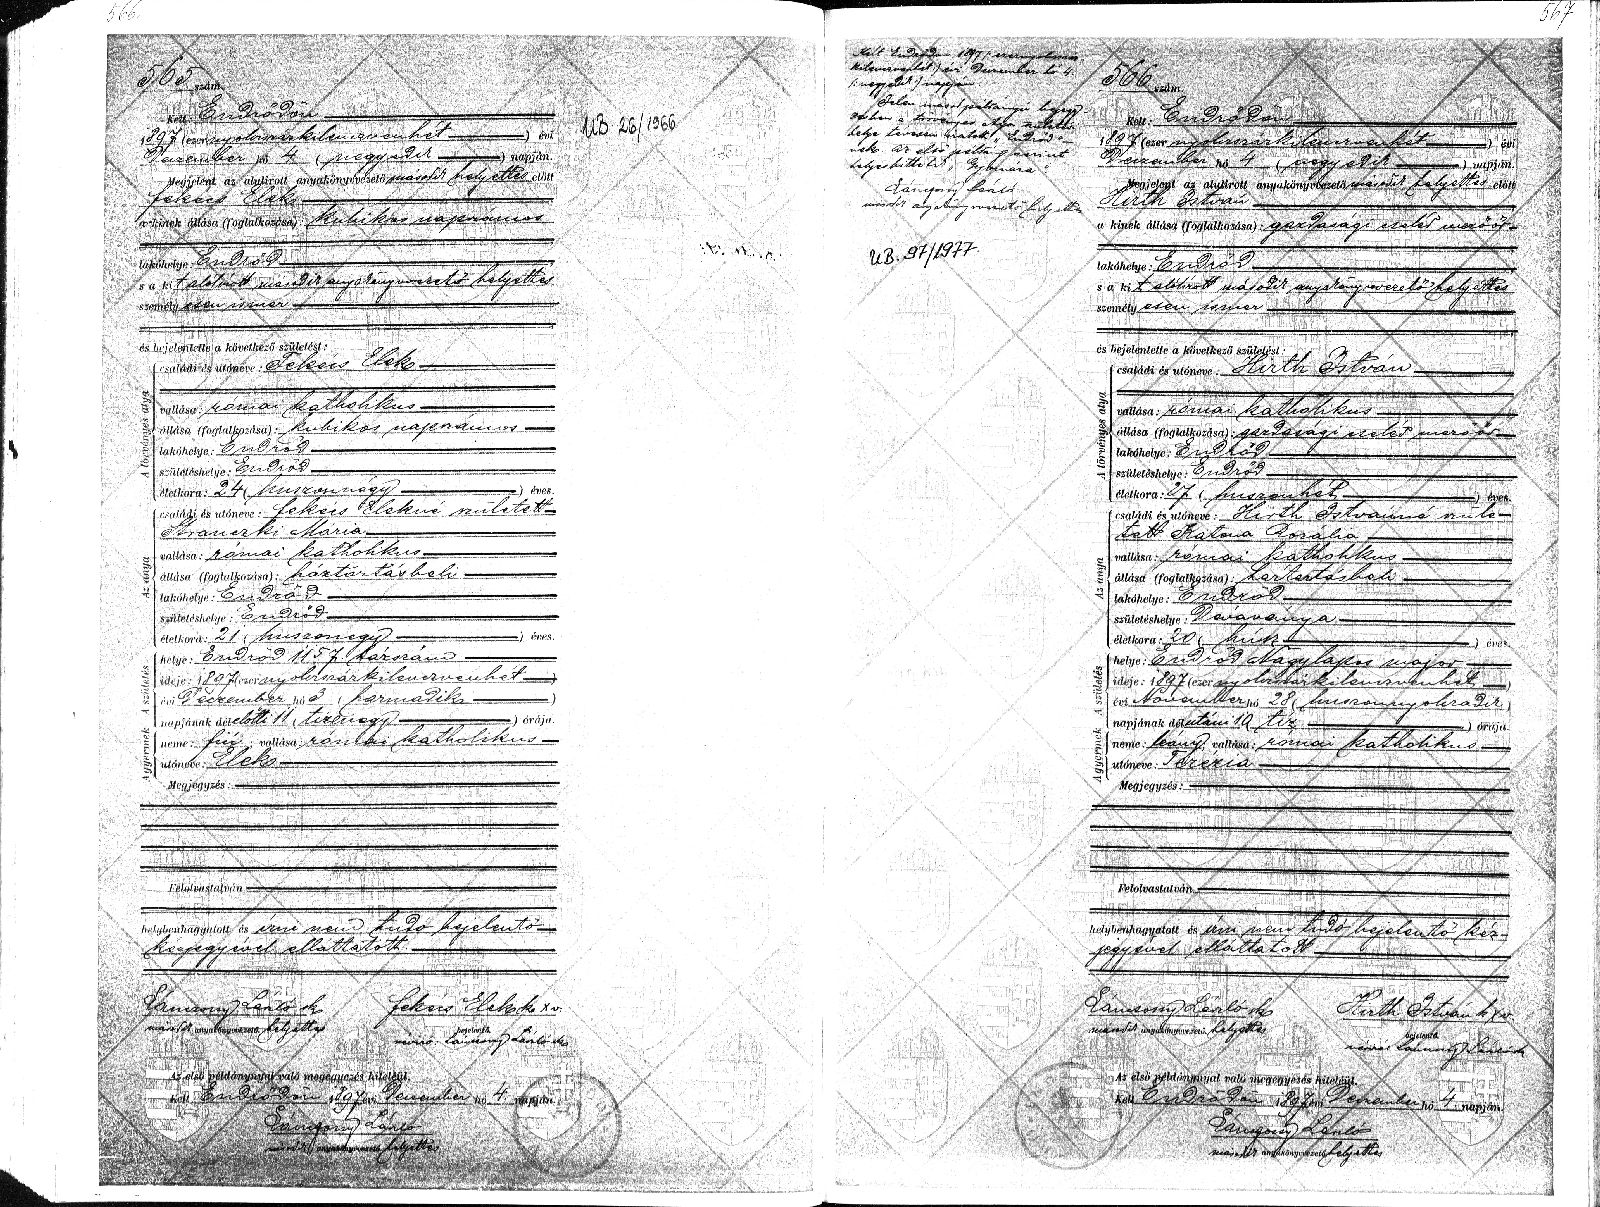 566
565 szám.
Kelt Endrődön
1897 (ezer nyolczszázkilenczvenhét) évi
Deczember hó 4 (negyedik) napján.
Megjelent az alulirott anyakönyvvezető második helyettes előtt
Fekécs Elek
a kinek állása (foglalkozása): kubikos napszámos
lakóhelye: Endrőd
s a kit alólirott második anyakönyvvezető helyettes
személyesen ismer
és bejelentette a következő születést:
A törvényes atya
családi és utóneve: Fekécs Elek
vallása: római katholikus
állása (foglalkozása): kubikos napszámos
lakóhelye: Endrőd
születéshelye: Endrőd
életkora: 24 (huszonnégy) éves.
Az anya
családi és utóneve: Fekécs Elekné született
Mária
vallása: római katholikus
állása (foglalkozása): háztartásbeli
lakóhelye: Endrőd
születéshelye: Endrőd
életkora: 21 (huszonegy) éves.
A születés
helye: Endrőd 1157 házszám
ideje: 1897 (ezer nyolczszázkilenczvenhét)
évi Deczember hó 3 (harmadik)
napjának délelőtti 11 (tizenegy) órája.
A gyermek
neme: fiú vallása: római katholikus
utóneve: Elek
Megjegyzés:
Felolvastatván
helybenhagyatott és irni nem tudó bejelentő
kézjegyével elláttatott
László sk
második anyakönyvvezető helyettes
Fekécs Elek k x v.
bejelentő
névíró László sk
Az első példánynyal való megegyezés hiteléül.
Kelt Endrődön 1897 évi Deczember hó 4. napján.
László
második anyakönyvvezető helyettes
UB 26/1966
567
Kelt Endrődön 1897 (ezernyolczszáz
kilenczvenhét) évi Deczember hó 4.
(negyedik) napján.
Jelen másodpéldányú
László
második anyakönyvvezető helyettes
UB. 97/1977
566 szám.
Kelt: Endrődön
1897 (ezer nyolczszázkilenczvenhét) évi
Deczember hó 4 (negyedik) napján.
Megjelent az alulirott anyakönyvvezető második helyettes előtt
Hirth István
a kinek állása (foglalkozása): gazdasági cseléd mezőőr
lakóhelye: Endrőd
s a kit alólirott második anyakönyvvezető helyettes
személyesen ismer
és bejelentette a következő születést:
A törvényes atya
családi és utóneve: Hirth István
vallása: római katholikus
állása (foglalkozása): gazdasági cseléd mezőőr
lakóhelye: Endrőd
születéshelye: Endrőd
életkora: 27 (huszonhét) éves.
Az anya
családi és utóneve: Hirth Istvánné szüle-
tett Katona Rozália
vallása: római katholikus
állása (foglalkozása): háztartásbeli
lakóhelye: Endrőd
születéshelye: Dévaványa
életkora: 20 (húsz) éves
A születés
helye: Endrőd Nagylapos major
ideje: 1897 (ezer nyolczszázkilenczvenhét)
évi November hó 28 (huszonnyolczadik)
napjának délutáni 10 (tiz) órája.
A gyermek
neme: leány vallása: római katholikus
utóneve: Terézia
Megjegyzés:
Felolvastatván
helybenhagyatott és irni nem tudó bejelentő kéz-
jegyével elláttatott
László sk
második anyakönyvvezető helyettes
Hirth István k x v
bejelentő
László sk
Az első példánynyal való megegyezés hiteléül.
Kelt Endrődön 1897 évi Deczember hó 4. napján.
László
második anyakönyvvezető helyettes